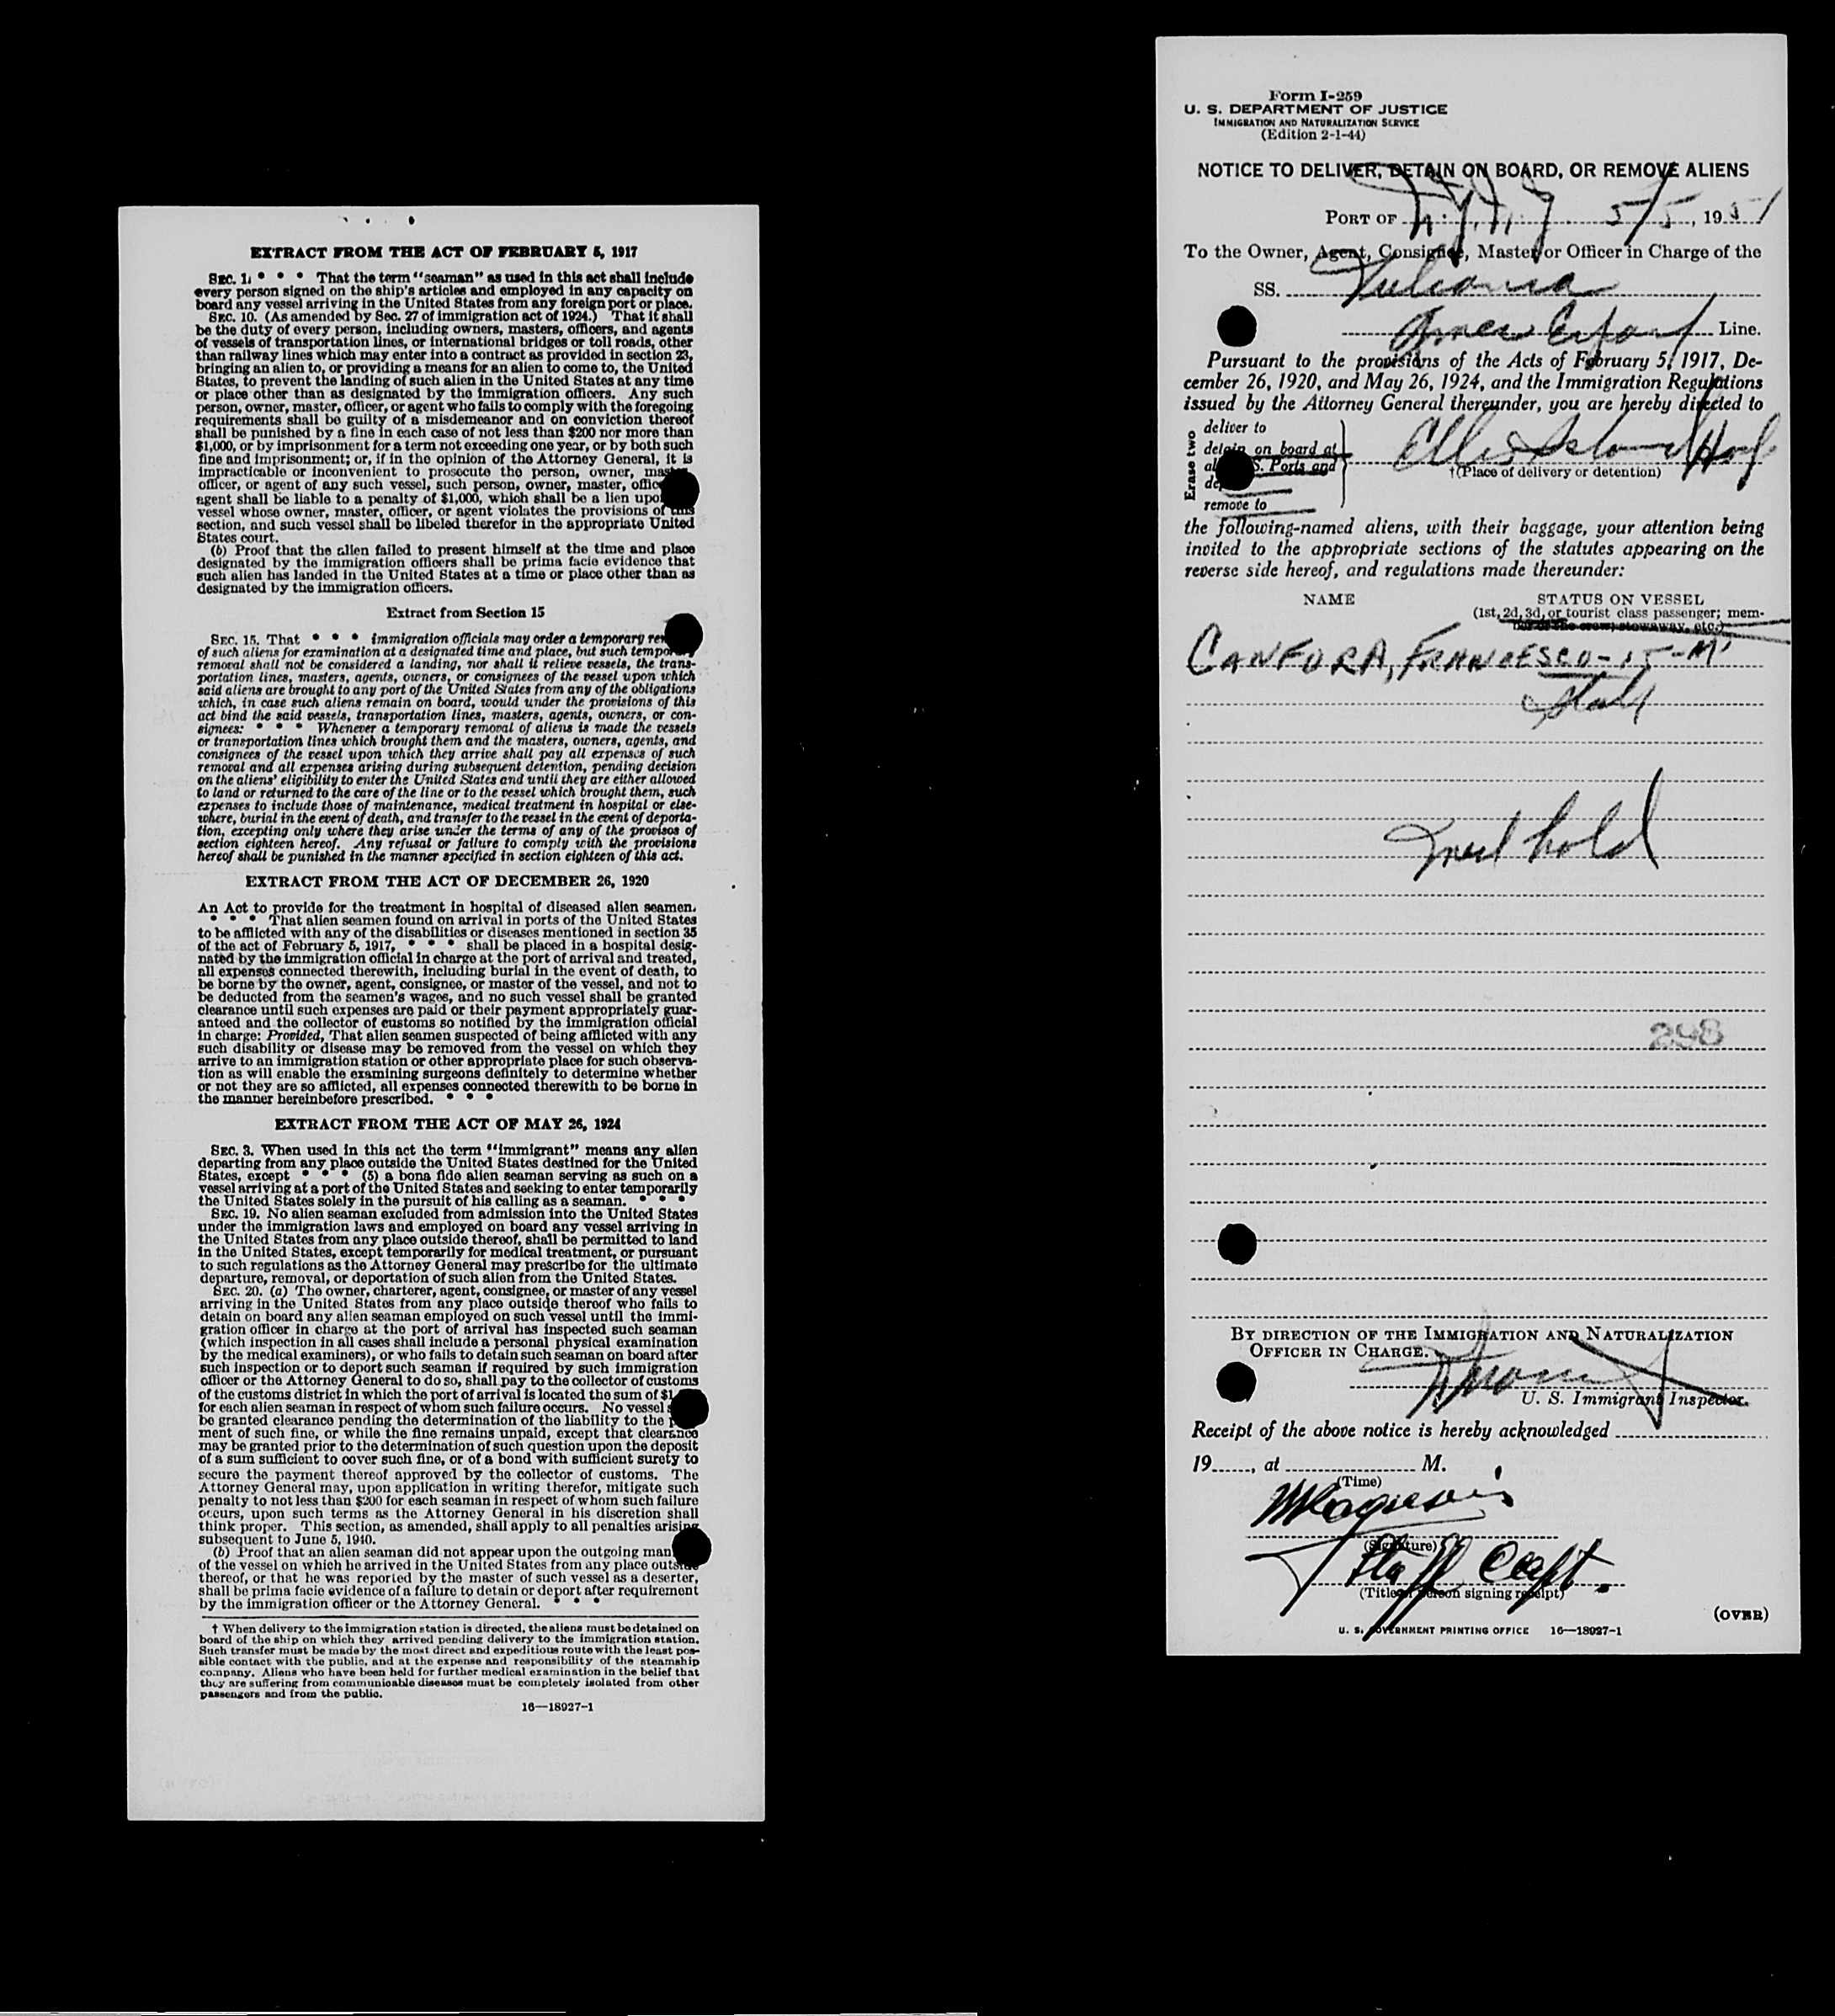 EXTRACT FROM THE ACT OF FEBRUARY 5, 1917
SEC. 1. * * * That the term "seaman" as used in this act shall include
every person signed on the ship's articles and employed in any capacity on
board any vessel arriving in the United States from any foreign port or place.
SEC. 10. (As amended by Sec. 27 of immigration act of 1924.) That it shall
be the duty of every person, including owners, masters, officers, and agents
of vessels of transportation lines, or international bridges or toll roads, other
than railway lines which may enter into a contract as provided in section 23,
bringing an alien to, or providing a means for an alien to come to, the United
States, to prevent the landing of such alien in the United States at any time
or place other than as designated by the immigration officers. Any such
person, owner, master, officer, or agent who fails to comply with the foregoing
requirements shall be guilty of a misdemeanor and on conviction thereof
shall be punished by a fine in each case of not less than $200 nor more than
$1,000, or by imprisonment for a term not exceeding one year, or by both such
fine and imprisonment; or, if in the opinion of the Attorney General, it is
impracticable or inconvenient to prosecute the person, owner, master,
officer, or agent of any such vessel, such person, owner, master, officer
agent shall be liable to a penalty of $1,000, which shall be a lien upon
vessel whose owner, master, officer, or agent violates the provisions of this
section, and such vessel shall be libeled therefor in the appropriate United
States court.
(b) Proof that the alien failed to present himself at the time and place
designated by the immigration officers shall be prima facie evidence that
such alien has landed in the United States at a time or place other than as
designated by the immigration officers.
Extract from Section 15
SEC. 15. That * * * immigration officials may order a temporary
of such aliens for examination at a designated time and place, but such temporary
removal shall not be considered a landing, nor shall it relieve vessels, the trans-
portation lines, masters, agents, owners, or consignees of the vessel upon which
said aliens are brought to any port of the United States from any of the obligations
which, in case such aliens remain on board, would under the provisions of this
act bind the said vessels, transportation lines, masters, agents, owners, or con-
signees: * * * Whenever a temporary removal of aliens is made the vessels
or transportation lines which brought them and the masters, owners, agents, and
consignees of the vessel upon which they arrive shall pay all expenses of such
removal and all expenses arising during subsequent detention, pending decision
on the aliens' eligibility to enter the United States and until they are either allowed
to land or returned to the care of the line or to the vessel which brought them, such
expenses to include those of maintenance, medical treatment in hospital or else-
where, burial in the event of death, and transfer to the vessel in the event of deporta-
tion, excepting only where they arise under the terms of any of the provisos of
section eighteen hereof. Any refusal or failure to comply with the provisions
hereof shall be punished in the manner specified in section eighteen of this act.
EXTRACT FROM THE ACT OF DECEMBER 26, 1920
An Act to provide for the treatment in hospital of diseased alien seamen.
* * * That alien seamen found on arrival in ports of the United States
to be afflicted with any of the disabilities or diseases mentioned in section 35
of the act of February 5, 1917, * * * shall be placed in a hospital desig-
nated by the immigration official in charge at the port of arrival and treated,
all expenses connected therewith, including burial in the event of death, to
be borne by the owner, agent, consignee, or master of the vessel, and not to
be deducted from the seamen's wages, and no such vessel shall be granted
clearance until such expenses are paid or their payment appropriately guar-
anteed and the collector of customs so notified by the immigration official
in charge: Provided, That alien seamen suspected of being afflicted with any
such disability or disease may be removed from the vessel on which they
arrive to an immigration station or other appropriate place for such observa-
tion as will enable the examining surgeons definitely to determine whether
or not they are so afflicted, all expenses connected therewith to be borne in
the manner hereinbefore prescribed. * * *
EXTRACT FROM THE ACT OF MAY 26, 1924
SEC. 3. When used in this act the term "immigrant" means any alien
departing from any place outside the United States destined for the United
States, except * * * (5) a bona fide alien seaman serving as such on a
vessel arriving at a port of the United States and seeking to enter temporarily
the United States solely in the pursuit of his calling as a seaman. * * *
SEC. 19. No alien seaman excluded from admission into the United States
under the immigration laws and employed on board any vessel arriving in
the United States from any place outside thereof, shall be permitted to land
in the United States, except temporarily for medical treatment, or pursuant
to such regulations as the Attorney General may prescribe for the ultimate
departure, removal, or deportation of such alien from the United States.
SEC. 20. (a) The owner, charterer, agent, consignee, or master of any vessel
arriving in the United States from any place outside thereof who fails to
detain on board any alien seaman employed on such vessel until the immi-
gration officer in charge at the port of arrival has inspected such seaman
(which inspection in all cases shall include a personal physical examination
by the medical examiners), or who fails to detain such seaman on board after
such inspection or to deport such seaman if required by such immigration
officer or the Attorney General to do so, shall pay to the collector of customs
of the customs district in which the port of arrival is located the sum of
for each alien seaman in respect of whom such failure occurs. No vessel
be granted clearance pending the determination of the liability to the
ment of such fine, or while the fine remains unpaid, except that clearance
may be granted prior to the determination of such question upon the deposit
of a sum sufficient to cover such fine, or of a bond with sufficient surety to
secure the payment thereof approved by the collector of customs. The
Attorney General may, upon application in writing therefor, mitigate such
penalty to not less than $200 for each seaman in respect of whom such failure
occurs, upon such terms as the Attorney General in his discretion shall
think proper. This section, as amended, shall apply to all penalties arising
subsequent to June 5, 1940.
(b) Proof that an alien seaman did not appear upon the outgoing
of the vessel on which he arrived in the United States from any place outside
thereof, or that he was reported by the master of such vessel as a deserter,
shall be prima facie evidence of a failure to detain or deport after requirement
by the immigration officer or the Attorney General. * * *
† When delivery to the immigration station is directed, the aliens must be detained on
board of the ship on which they arrived pending delivery to the immigration station.
Such transfer must be made by the most direct and expeditious route with the least pos-
sible contact with the public, and at the expense and responsibility of the steamship
company. Aliens who have been held for further medical examination in the belief that
they are suffering from communicable diseases must be completely isolated from other
passengers and from the public.
16—18927-1
Form I-259
U. S. DEPARTMENT OF JUSTICE
IMMIGRATION AND NATURALIZATION SERVICE
(Edition 2-1-44)
NOTICE TO DELIVER, DETAIN ON BOARD, OR REMOVE ALIENS
PORT OF N.Y.N.Y. 5/5, 1951
To the Owner, Agent, Consignee, Master or Officer in Charge of the
SS. Vulcania
Amer Export Line.
Pursuant to the provisions of the Acts of February 5, 1917, De-
cember 26, 1920, and May 26, 1924, and the Immigration Regulations
issued by the Attorney General thereunder, you are hereby directed to
Erase two
deliver to
detain on board at
S. Ports and
remove to
Ellis Island Hosp
†(Place of delivery or detention)
the following-named aliens, with their baggage, your attention being
invited to the appropriate sections of the statutes appearing on the
reverse side hereof, and regulations made thereunder:
NAME STATUS ON VESSEL
(1st, 2d, 3d, or tourist class passenger; mem-
ber of the crew, stowaway, etc.)
CANFORA, FRANCESCO - 15 - M
Italy
Med hold
248
BY DIRECTION OF THE IMMIGRATION AND NATURALIZATION
OFFICER IN CHARGE.
U. S. Immigrant Inspector.
Receipt of the above notice is hereby acknowledged
19, at M.
(Time)
(Signature)
Staff Capt.
(Title of person signing receipt)
(OVER)
U. S. GOVERNMENT PRINTING OFFICE 16—18927-1